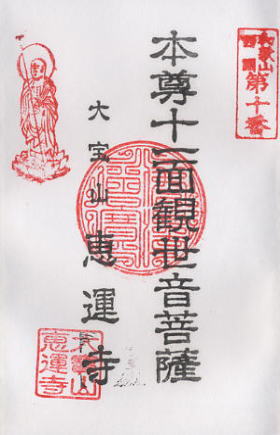 第十番
本尊十一面観世音菩薩
大宝山
恵運寺
大寶山
恵運寺